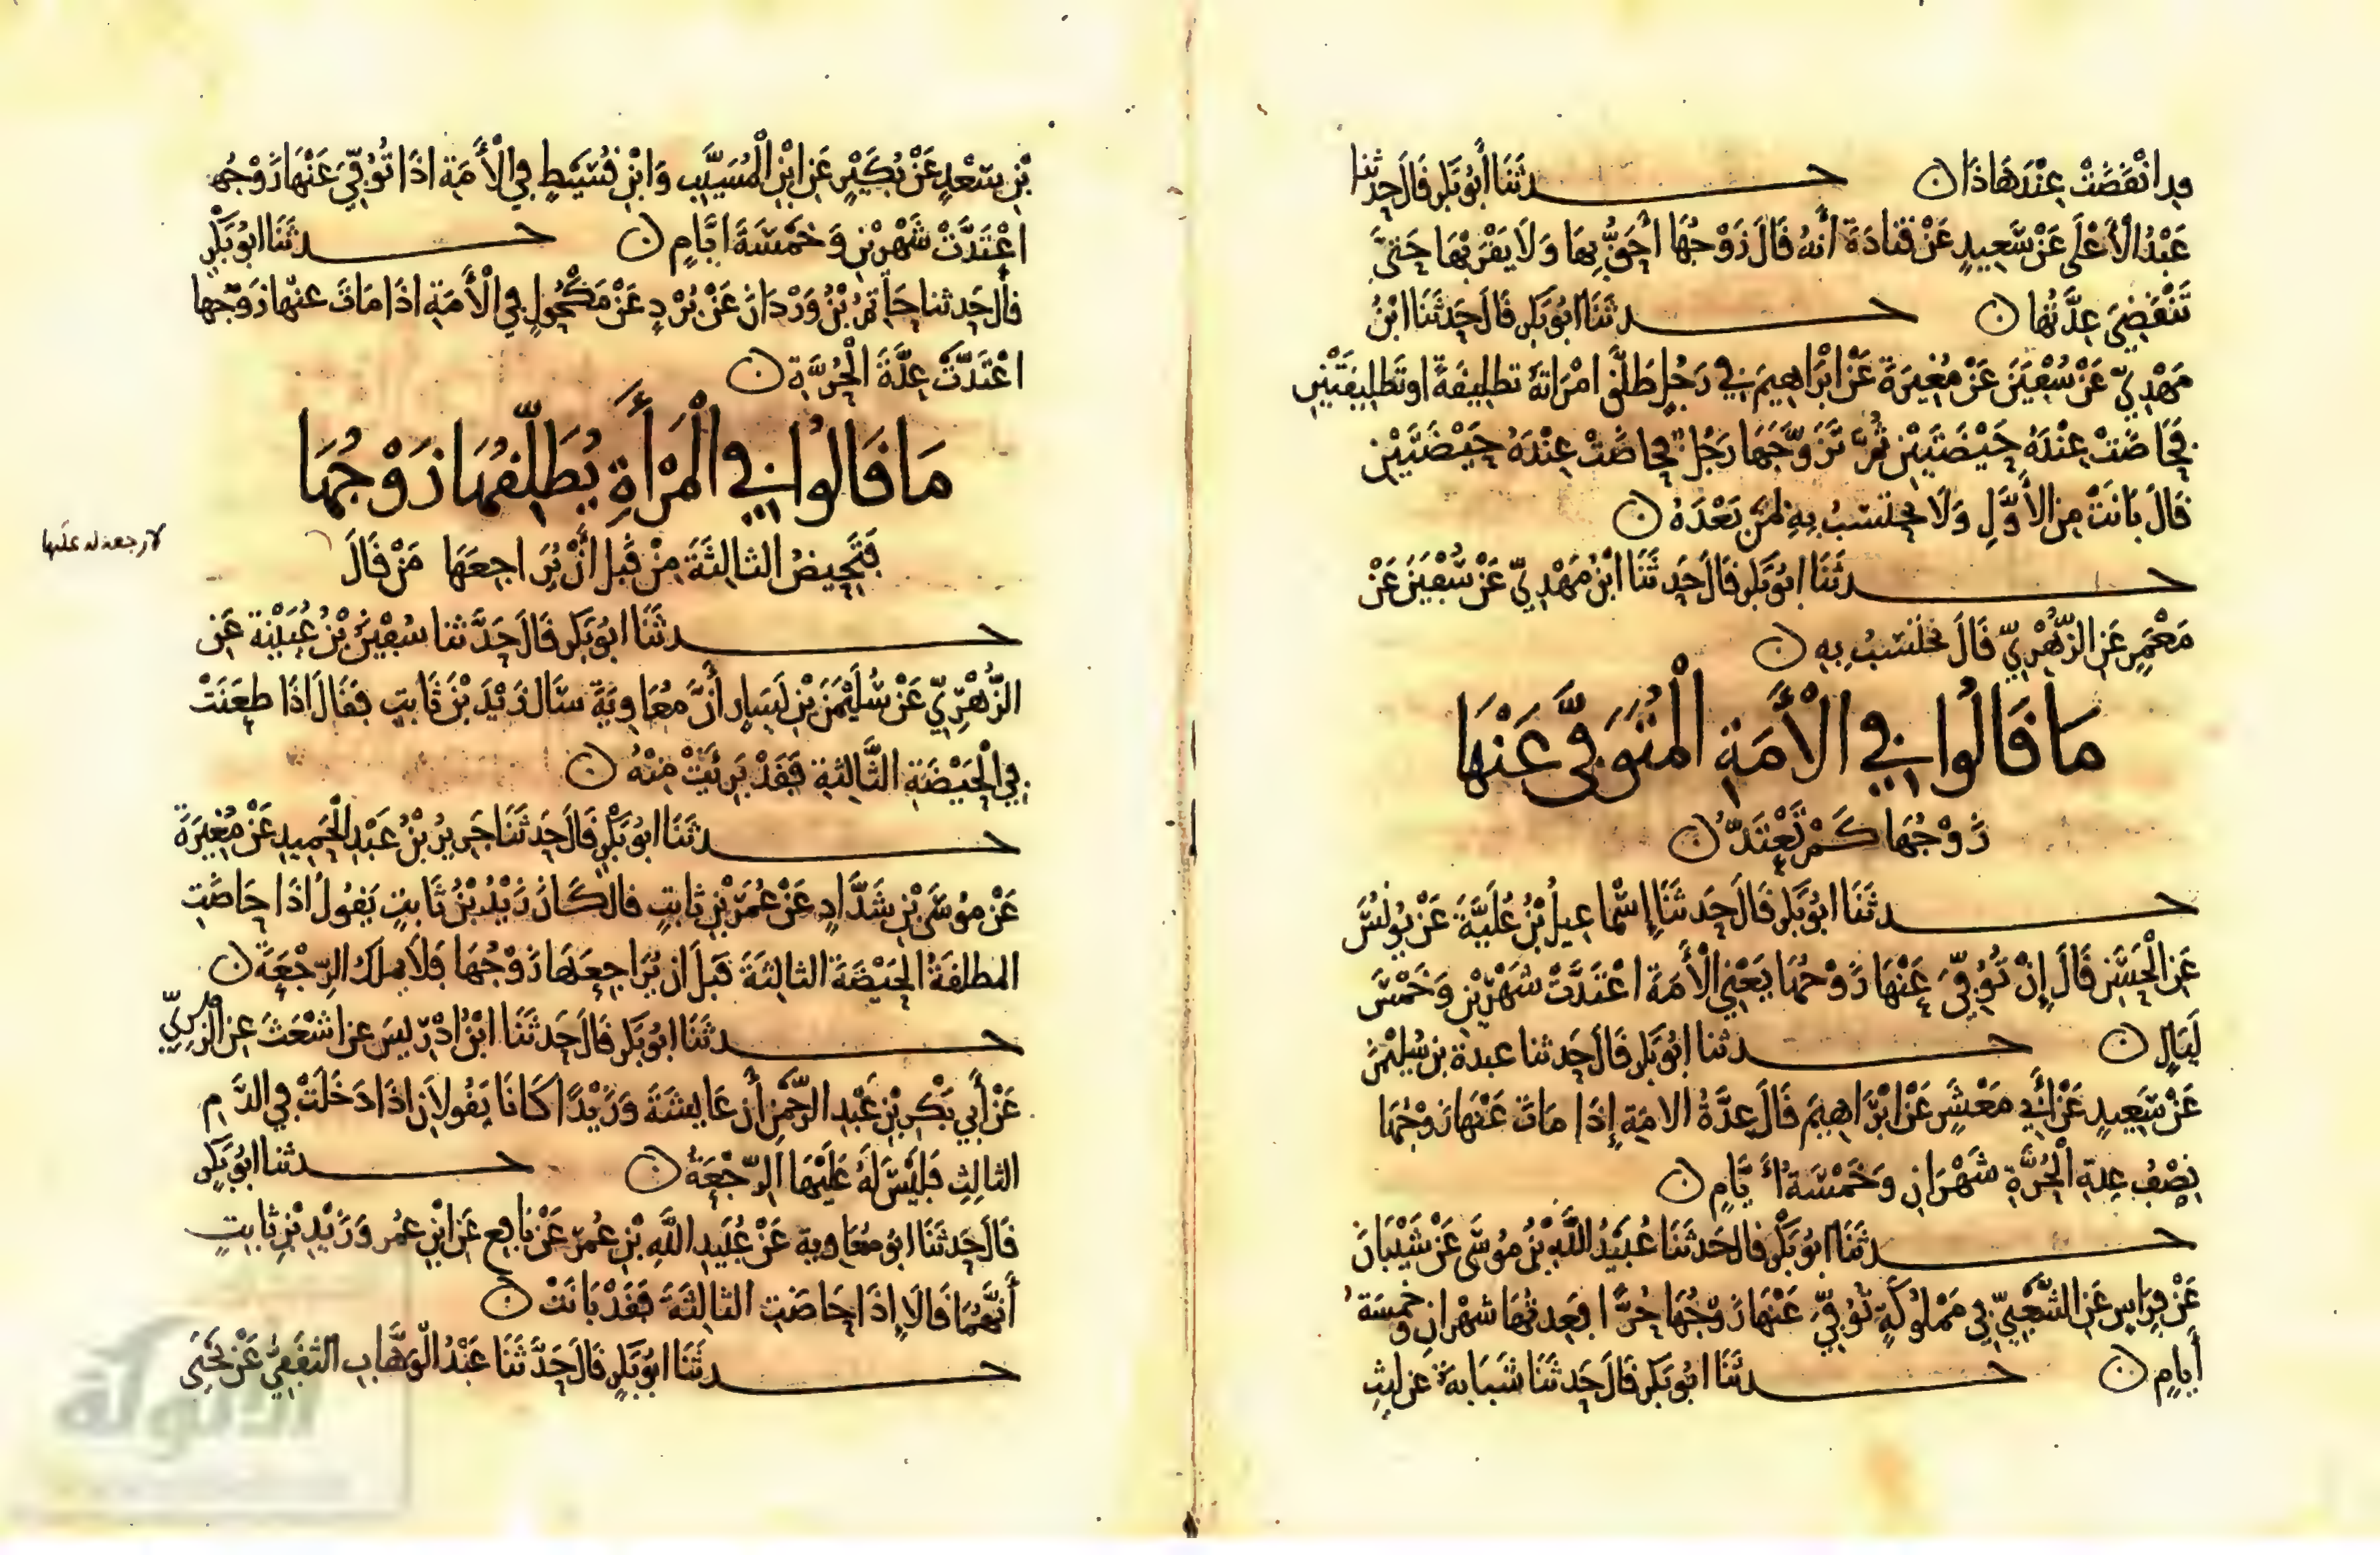 قد انْقَضَتْ عِنْدَ هَاذَا ن حـــدثَنَا أبُو بَكر قَالَ حدثنا
عَبْدُ الْأَعْلَى عَنْ سَعِيدٍ عَنْ قَتَادَةَ أَنهُ قَالَ زَوْجُهَا أحَقُّ بِهَا وَلَا يَقْرَبُهَا حَتَّى
تَنْقَضِيَ عِدَّتُها ن حـــدثَنَا ابُو بَكر قَالَ حَدثَنَا ابْنُ
مَهْدِيّ عَنْ سُفْيَنَ عَنْ مُغِيرَةَ عَنْ ابْرَاهِيمَ فِي رَجُلٍ طَلَّقَ امْرَاتَهُ تطلِيقَةً او تَطْلِيقَتَيْنِ
فَحَاضَتْ عِنْدَهُ حَيْضَتَيْنِ ثُمَّ تَزَوَّجَهَا رَجُلٌ فحاضَتْ عِنْدَهُ حَيْضَتَيْنِ
قَالَ بَانَتْ مِن الأَوَّلِ وَلَا تحتسبُ بِهِ لمن بَعْدَهُ ن
حـــدثَنَا ابُو بَكر قَالَ حَدثَنَا ابْنُ مَهْدِيّ عَنْ سُفْيَنَ عَنْ
مَعْمَرٍ عَنِ الزُّهْرِيّ قَالَ تحتسِبُ بِهِ ن
مَا قَالُوا فِي الْأَمَةِ الْمُتَوَفَّى عَنْهَا
زَوْجُهَا كَمْ تَعْتَدُّ ن
حـــدثَنَا ابُو بَكر قَالَ حَدثَنَا إسْمَاعِيلُ بْنُ عُلَيَّةَ عَنْ يُونُسَ
عَنِ الْحَسَنِ قَالَ إِنْ تُوُفِّيَ عَنْهَا زَوْجُهَا يَعْنِي الْأَمَةَ اعْتَدَّتْ شَهْرَيْنِ وَخَمْسَ
لَيَالٍ ن حـــدثنا ابُو بَكر قَالَ حَدثنا عبدة بن سُلَيْمَنَ
عَنْ سَعِيدٍ عَنْ أَبِي مَعْشَرٍ عَنْ ابْرَاهِيمَ قَالَ عِدَّةُ الامَةِ إِذَا مَاتَ عَنْهَا زَوْجُهَا
نِصْفُ عِدةِ الْحُرَّةِ شَهْرَانِ وَخَمْسَةُ أَيَّامٍ ن
حـــدثَنَا ابُو بَكْرٍ قال حَدثَنَا عُبَيْدُ اللَّهِ بْنُ مُوسَى عَنْ شَيْبَانَ
عَنْ فِرَاسٍ عَنِ الشَّعْبِيّ فِي مَمْلُوكَةٍ تُوُفِّيَ عَنْهَا زَوْجُهَا حُرًّا فعِدتُهَا شهْرانِ وخمسَةُ
أَيامٍ ن حـــدثَنَا ابُو بَكر قَالَ حَدثَنَا شَبَابَة عن ليثِ
بْنِ سَعْدٍ عَنْ بُكَيْرٍ عَنِ ابْنِ الْمُسَيَّبِ وَابْنِ قُسَيْطٍ فِي الْأَمَةِ اذَا تُوُفِّيَ عَنْهَا زَوْجُها
اعْتَدَّتْ شَهْرَيْنِ وَخَمْسَةَ ايَّامٍ ن حـــدثَنَا ابُو بَكْرٍ
قال حَدثنا حَاتمُ بْنُ وَرْدَانَ عَنْ بُرْدٍ عَنْ مَكْحُولٍ فِي الْأَمَةِ اذَا مَاتَ عنها زوْجها
اعْتَدَّتْ عِدَّةَ الْحُرَّةِ ن
مَا قَالُوا فِي الْمَرْأَةِ يُطَلِّقُهَا زَوْجُهَا
فَتَحِيضُ الثالِثَةَ مِنْ قَبْلِ أَنْ يُرَاجِعَهَا مَنْ قَالَ
لا رجعة له عليها
حـــدثَنَا ابُو بَكر قَالَ حَدَّثنا سُفْيَنُ بْنُ عُيَيْنَة عَنِ
الزُّهْرِيّ عَنْ سُلَيْمَنَ بْنِ يَسَارٍ أَنَّ مُعَاوِيَةَ سَال زَيْدَ بْنَ ثَابِتٍ فَقَالَ اذَا طعَنَتْ
فِي الْحَيْضَةِ الثَّالِثَةِ فَقَدْ بَرِئَتْ مِنْهُ ن
حـــدثَنَا ابُو بَكْرٍ قَالَ حَدثَنَا جَرِيرُ بْنُ عَبْدِ الْحَمِيدِ عَنْ مُغِيرَةَ
عَنْ مُوسَى بْنِ شَدَّادٍ عَنْ عُمَرَ بْنِ ثابِتٍ قال كَانَ زَيْدُ بْنُ ثَابِتٍ يَقُولُ اذَا حَاضَتِ
المطلقةُ الْحَيْضَةَ الثالِثَةَ قَبْلَ ان يُرَاجِعَهَا زَوْجُهَا فَلَا يملك الرجْعَةَ ن
حـــدثَنَا ابُو بَكر قَالَ حَدثَنَا ابْنُ ادْرِيسَ عن اشْعَثَ عن الزهريّ
عَنْ أَبِي بَكْرِ بْنِ عَبْدِ الرَّحْمَنِ أَن عَايِشَةَ وَزَيْدًا كَانَا يَقُولَانِ اذَا دَخَلَتْ فِي الدَّمِ
الثالِثِ فَلَيْسَ لَهُ عَلَيْهَا الرّجْعَةُ ن حـــدثنا ابُو بَكرٍ
قَالَ حَدثَنَا ابو مُعَاوية عَنْ عُبَيْدِ اللَّهِ بْنِ عُمَرَ عَنْ نَافِعٍ عَنِ ابْنِ عُمر وَزَيْدِ بْنِ ثابِتٍ
أَنَّهُمَا قَالَا إِذَا حَاضَتِ الثالِثَةَ فَقَدْ بَانَتْ ن
حـــدثَنَا ابُو بَكرٍ قَالَ حَدَّثَنَا عَبْدُ الْوَهَّابِ الثقَفِيُّ عَنْ يَحْيَى
الألوكة